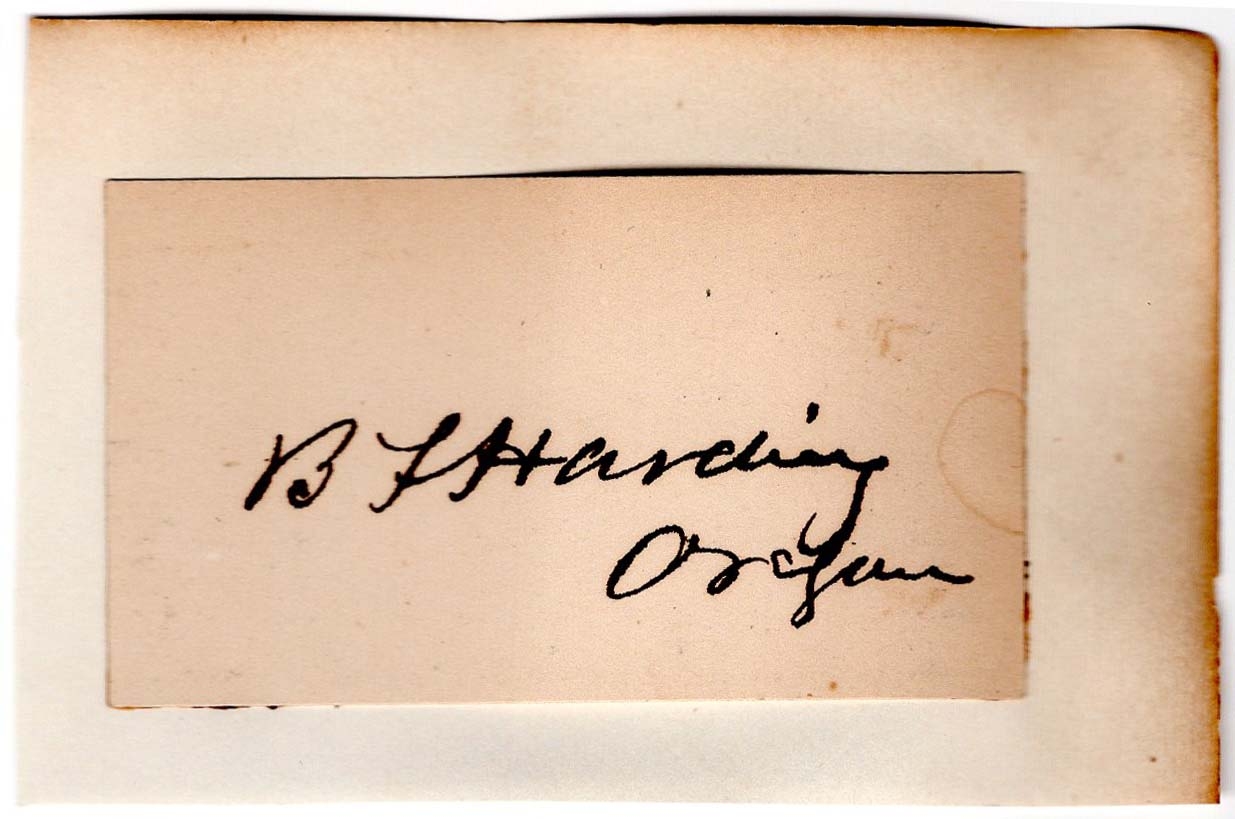 B F Harding
Oregon